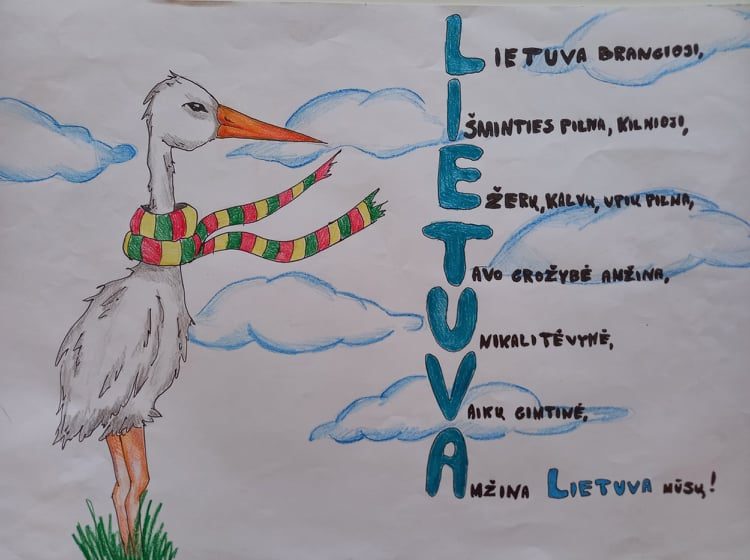 LIETUVA BRANGIOJI,
IŠMINTIES PILNA, KILNIOJI,
EŽERŲ, KALVŲ, UPIŲ PILNA,
TAVO GROŽYBĖ AMŽINA,
UNIKALI TĖVYNĖ,
VAIKŲ GIMTINĖ,
AMŽINA LIETUVA MŪSŲ!